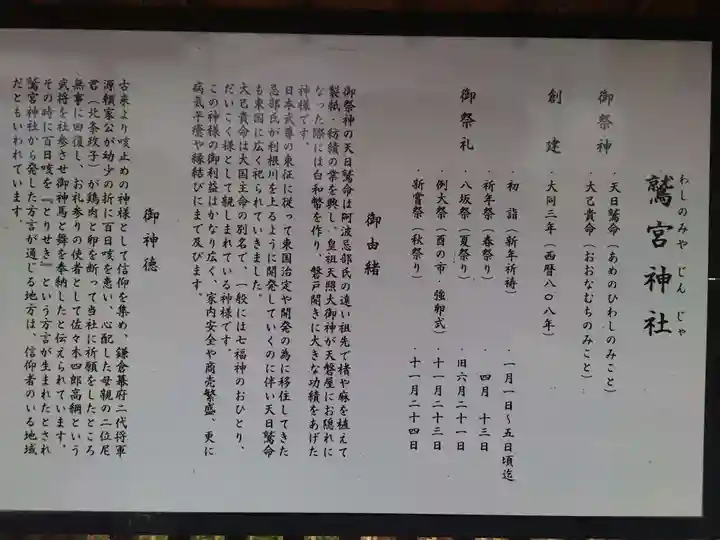 わしのみや じん じゃ
鷲宮神社
御祭神
・天日鷲命(あめのひわしのみこと)
・大己貴命(おおなむちのみこと)
創建
・大同三年(西暦八〇八年)
御祭礼
・初詣(新年祈祷)・一月一日〜五日頃迄
祈年祭(春祭り)・四月十三日
・八坂祭(夏祭り)・旧六月二十一日
・例大祭(酉の市・強卵式)・十一月二十三日
・新嘗祭(秋祭り)・十一月二十四日
御由緒
御祭神の天日鷲命は阿波忌部氏の遠い祖先で楮や麻を植えて
製紙・紡績の業を興し、皇祖天照大御神が天磐屋にお隠れに
なった際には白和幣を作り、磐戸開きに大きな功績をあげた
神様です。
日本武尊の東征に従って東国治定や開発の為に移住してきた
忌部氏が利根川を上るように開発していくのに伴い天日鷲命
も東国に広く祀られていきました。
大己貴命は大国主命の別名で、一般には七福神のおひとり、
だいこく様として親しまれている神様です。
この神様の御利益はかなり広く、家内安全や商売繁盛、更に
病気平癒や縁結びにまで及びます。
御神徳
古来より咳止めの神様として信仰を集め、鎌倉幕府二代将軍
源頼家公が幼少の折に百日咳を患い、心配した母親の二位尼
君(北条政子)が鶏肉と卵を断って当社に祈願をしたところ
無事に回復し、お礼参りの使者として佐々木四郎高綱という
武将を社参させ御神馬と舞を奉納したと伝えられています。
その時に百日咳を『とりせき』という方言が生まれたとされ
鷲宮神社から発した方言が通じる地方は、信仰者のいる地域
だともいわれています。